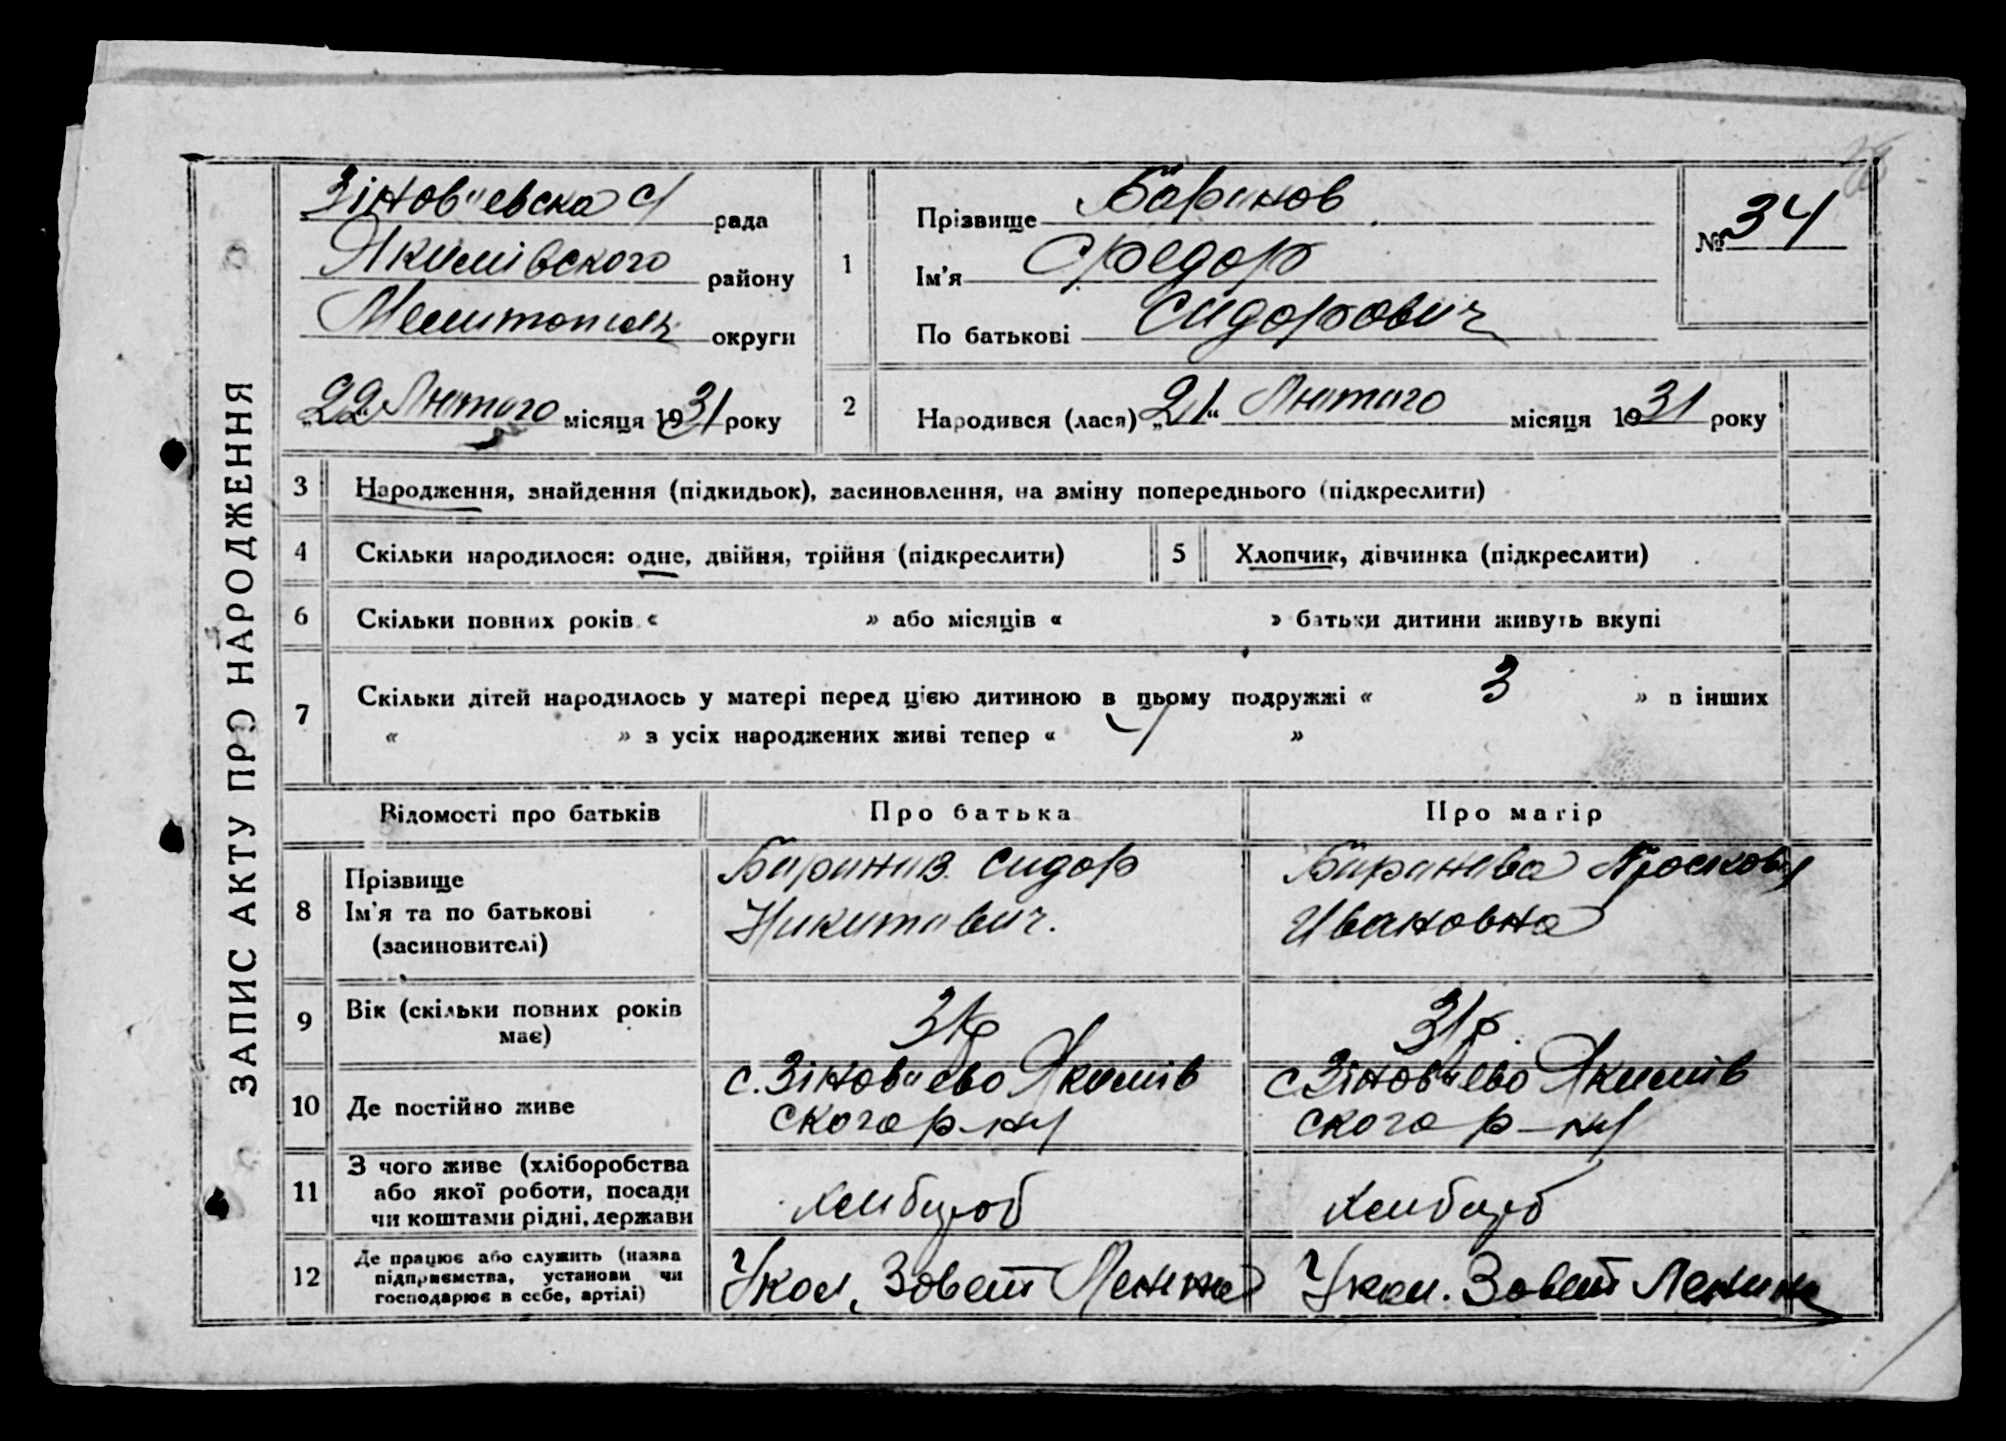 ЗАПИС АКТУ ПРО НАРОДЖЕННЯ
Зіновʼєвска с/ рада
Якимівского району
Мелитопільс округи
„22“ Лютого місяця 1931 року
1
Прізвище Баринов
Ім'я Федор
По батькові Сидорович
№ 34
2
Народився (лася) „21“ Лютого місяця 1931 року
3 Народження, знайдення (підкидьок), засиновлення, на зміну попереднього (підкреслити)
4 Скільки народилося: одне, двійня, трійня (підкреслити)
5 Хлопчик, дівчинка (підкреслити)
6 Скільки повних років « » або місяців « » батьки дитини живуть вкупі
7 Скільки дітей народилось у матері перед цією дитиною в цьому подружжі « 3 » в інших
« » з усіх народжених живі тепер « »
Відомості про батьків
Про батька
Про матір
8 Прізвище
Ім'я та по батькові
(засиновителі)
Баринов Сидор
Никитович.
Баринова Просковя
Ивановна
9 Вік (скільки повних років
має)
31р
31р.
10 Де постійно живе
с. Зіновʼєво Якимів
ского р-ну
с Зіновʼєво Якимів
ского р-ну
11 З чого живе (хліборобства
або якої роботи, посади
чи коштами рідні, держави
хлибороб
хлибороб
12 Де працює або служить (назва
підприємства, установи чи
господарює в себе, артілі)
У кол. Зовет Ленина
У кол. Зовет Ленина